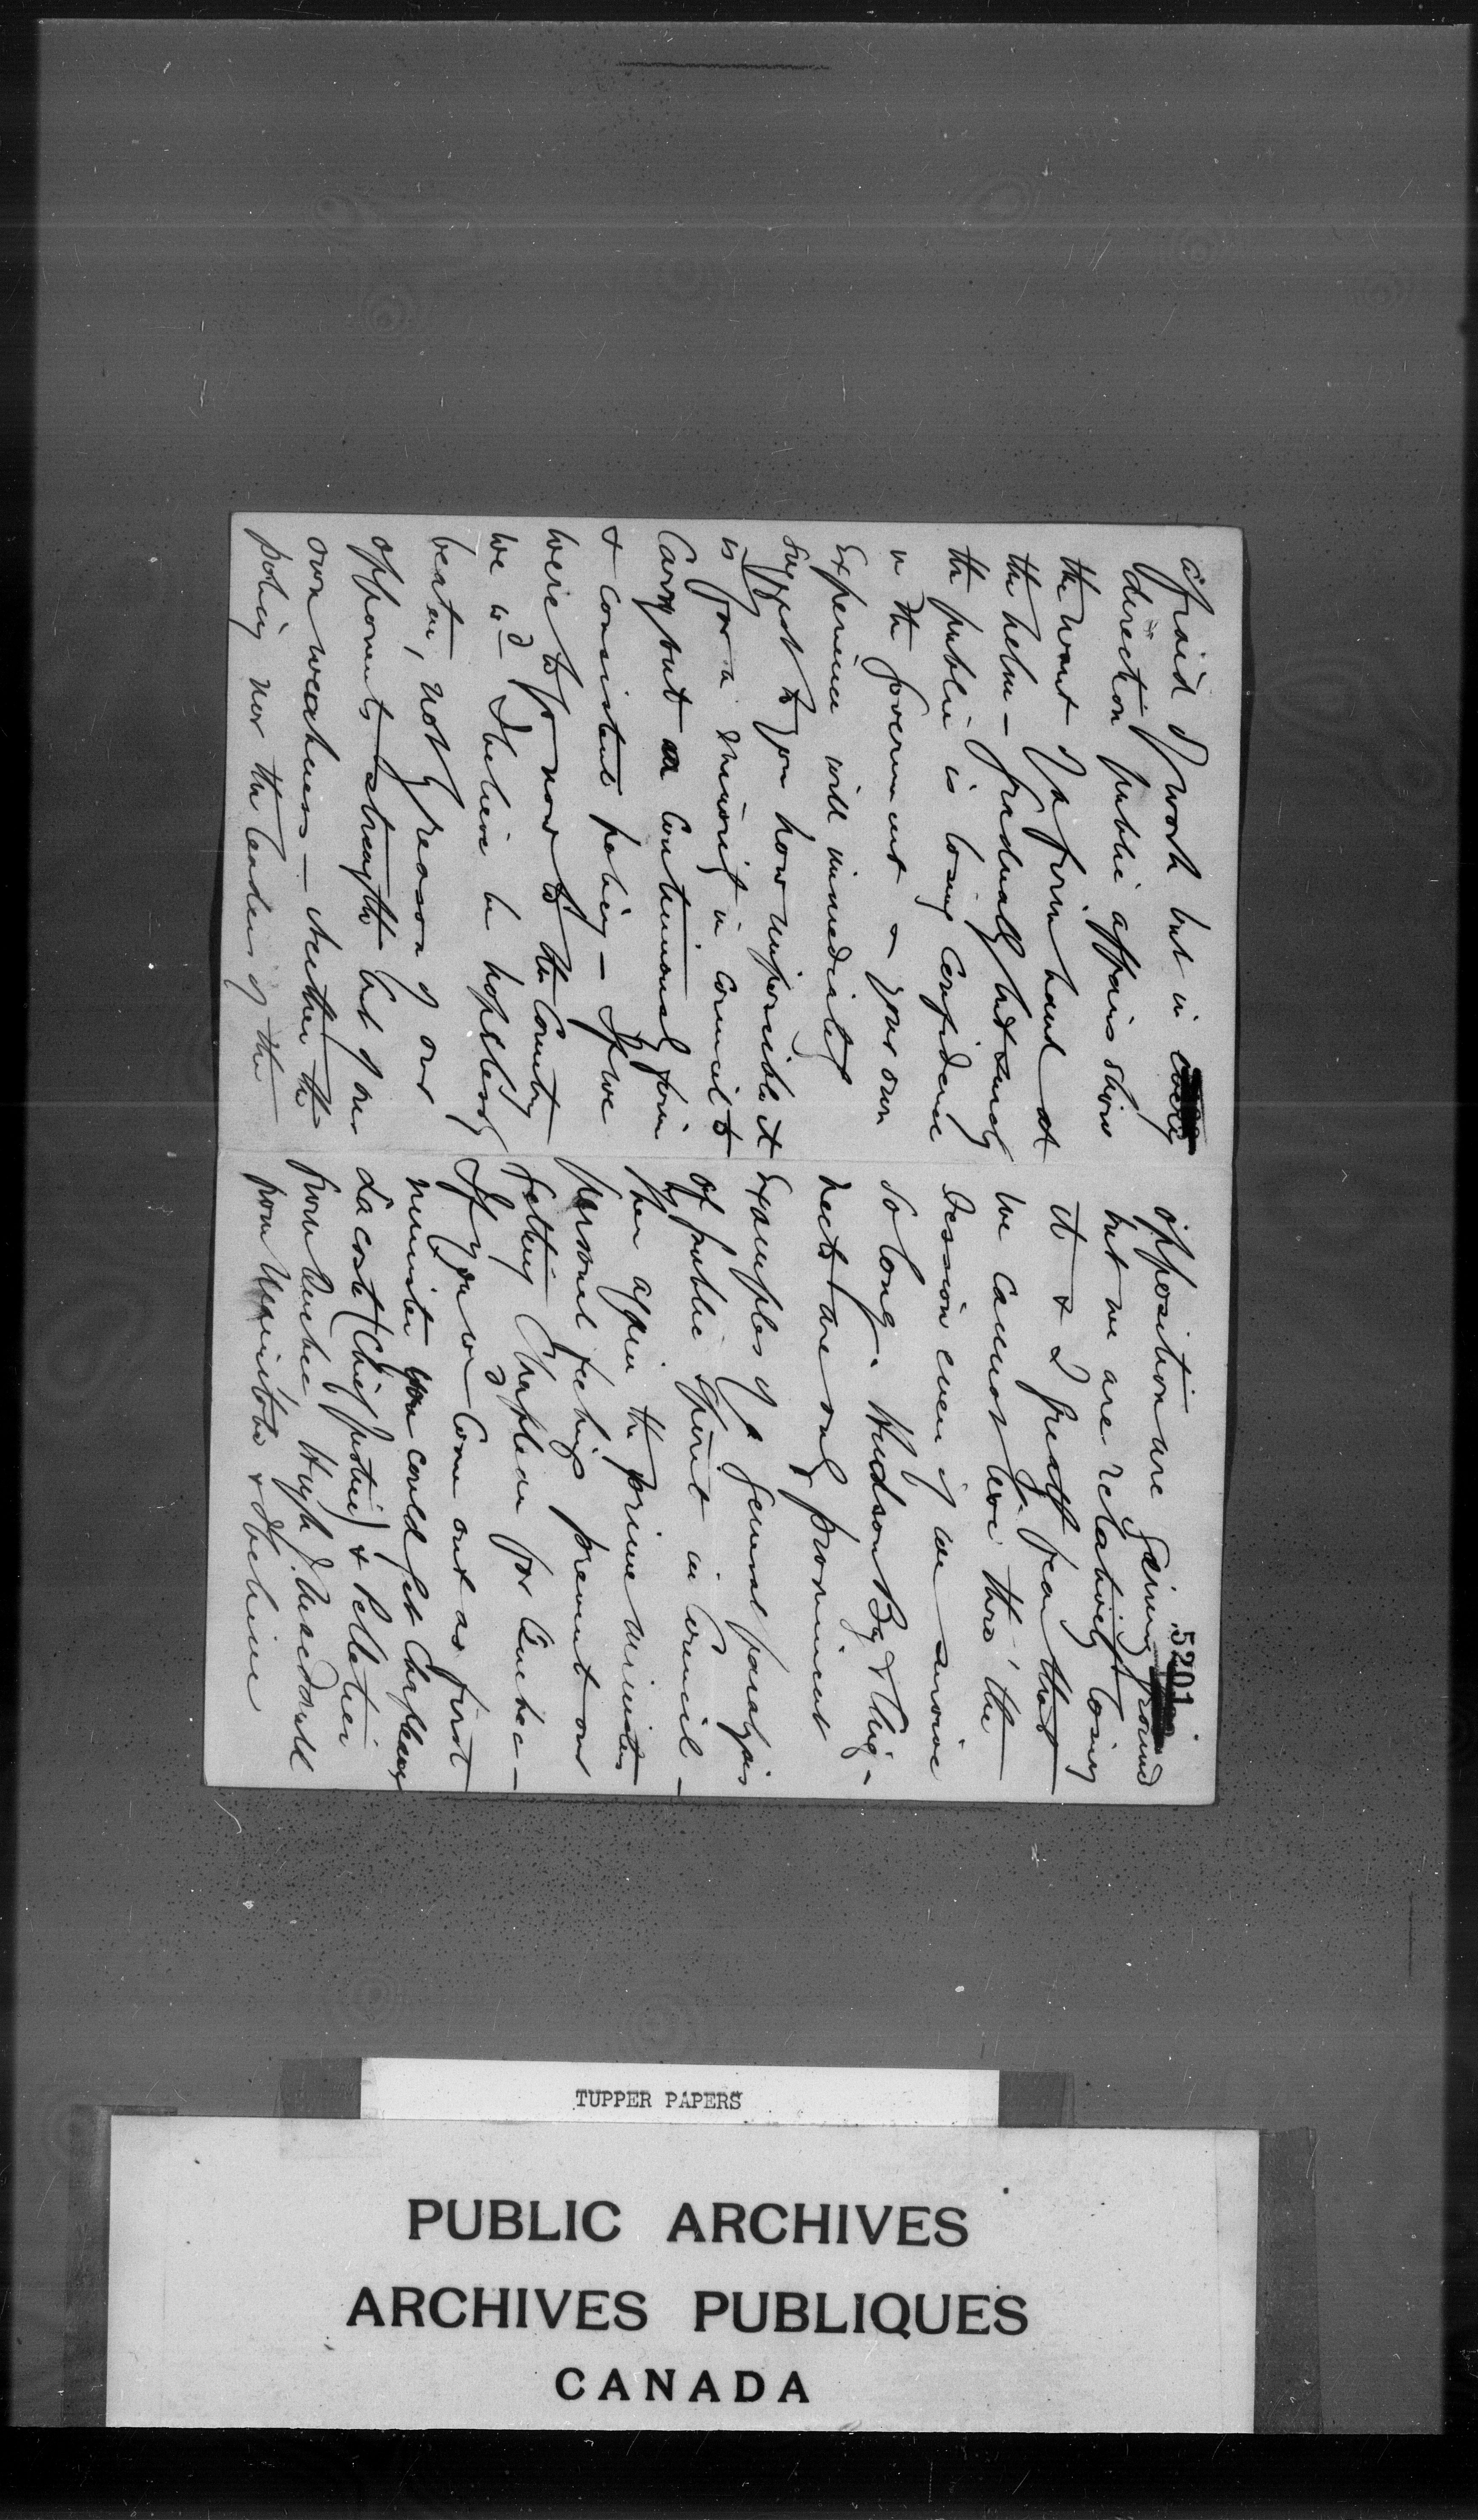 afraid of work but in every
direction public affairs show
the want of a firm hand at
the helm – gradually but surely
the public is losing confidence
in the government & your own
experience will immediately
suggest to you how impossible it
is for a minority in council to
carry out a continuously firm
& consistent policy – If we
were to go now to the Country
we wd I believe be hopelessly
beaten, not by reason of our
opponents strength but of our
own weakness – neither the
policy nor the leaders of the
opposition are gaining ground
but we are relatively losing
it & I greatly fear that
we cannot live thro' the
Session even if we survive
so long. Hudson Bay & Chig-
necto are only prominent
examples of a general paralysis
of public spirit in Council –
Then again the prime ministers
personal feelings prevent our
getting Chapleau for Quebec –
If you wd come out as first
minister you could get Chapleau
Lacoste (Chief justice) & Pelletier
from Quebec Hugh J. Macdonald
from Manitoba & I believe
5201
TUPPER PAPERS
PUBLIC ARCHIVES
ARCHIVES PUBLIQUES
CANADA